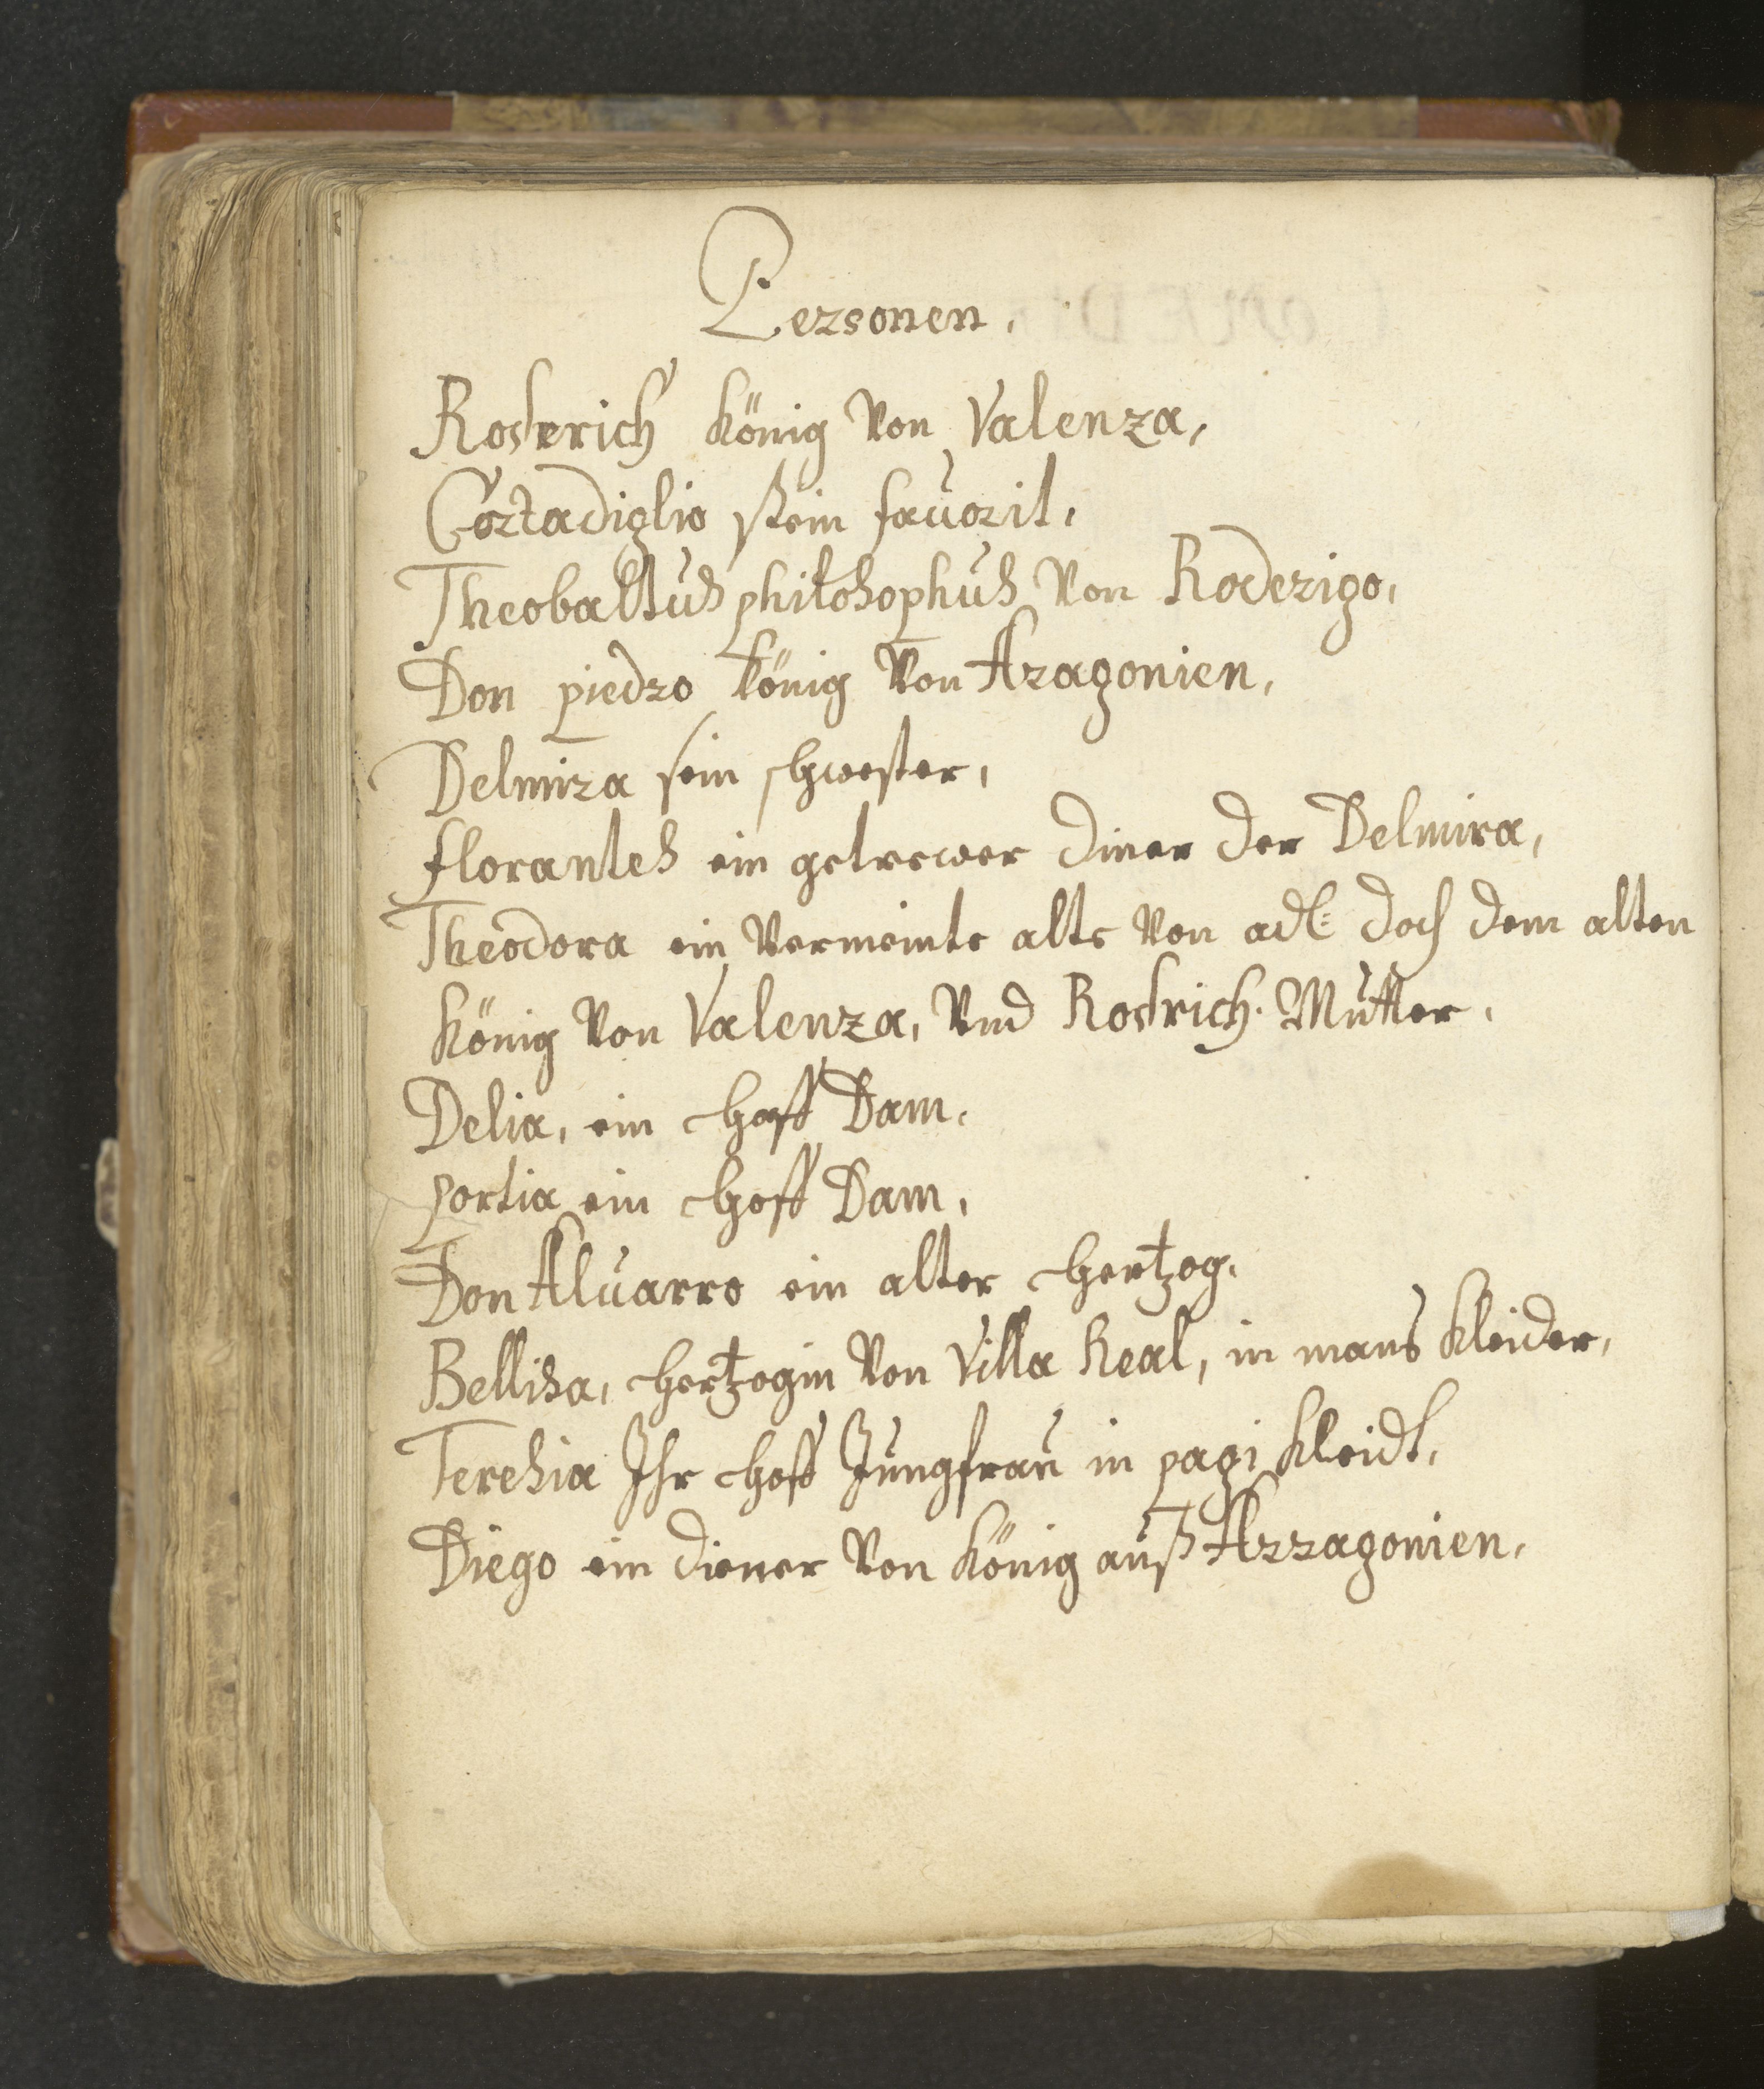 Personen.
Roderich König Von Valenza,
Cortadiglio sein favorit.
Theobaltus philosophus Von Roderigo,
Don piedro König Von Aragonien,
Delmira sein schwester,
florantes ein getrewer diner der Delmira,
Theodora ein Vermeinte alte Von adl: doch dem alten
König Von Valenza, Vnd Rodrich. Mutter.
Delia, ein Hoff Dam.
portia ein Hoff Dam,
Don Alvarro ein alter Hertzog.
Bellisa, Hertzogin Von Villa Real, in mans Kleider,
Teresia Ihr Hoff Jungfrau in pagi Kleidt,
Diego ein diener Von König auß Arragonien,